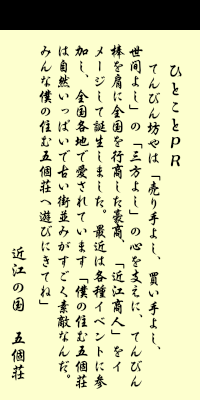 ひとことPR
てんびん坊やは「売り手よし、買い手よし、
世間よし」の「三方よし」の心を支えに、てんびん
棒を肩に全国を行商した豪商、「近江商人」をイ
メージして誕生しました。最近は各種イベントに参
加し、全国各地で愛されています「僕の住む五個荘
は自然いっぱいで古い街並みがすごく素敵なんだ。
みんな僕の住む五個荘へ遊びにきてね」
近江の国　五個荘